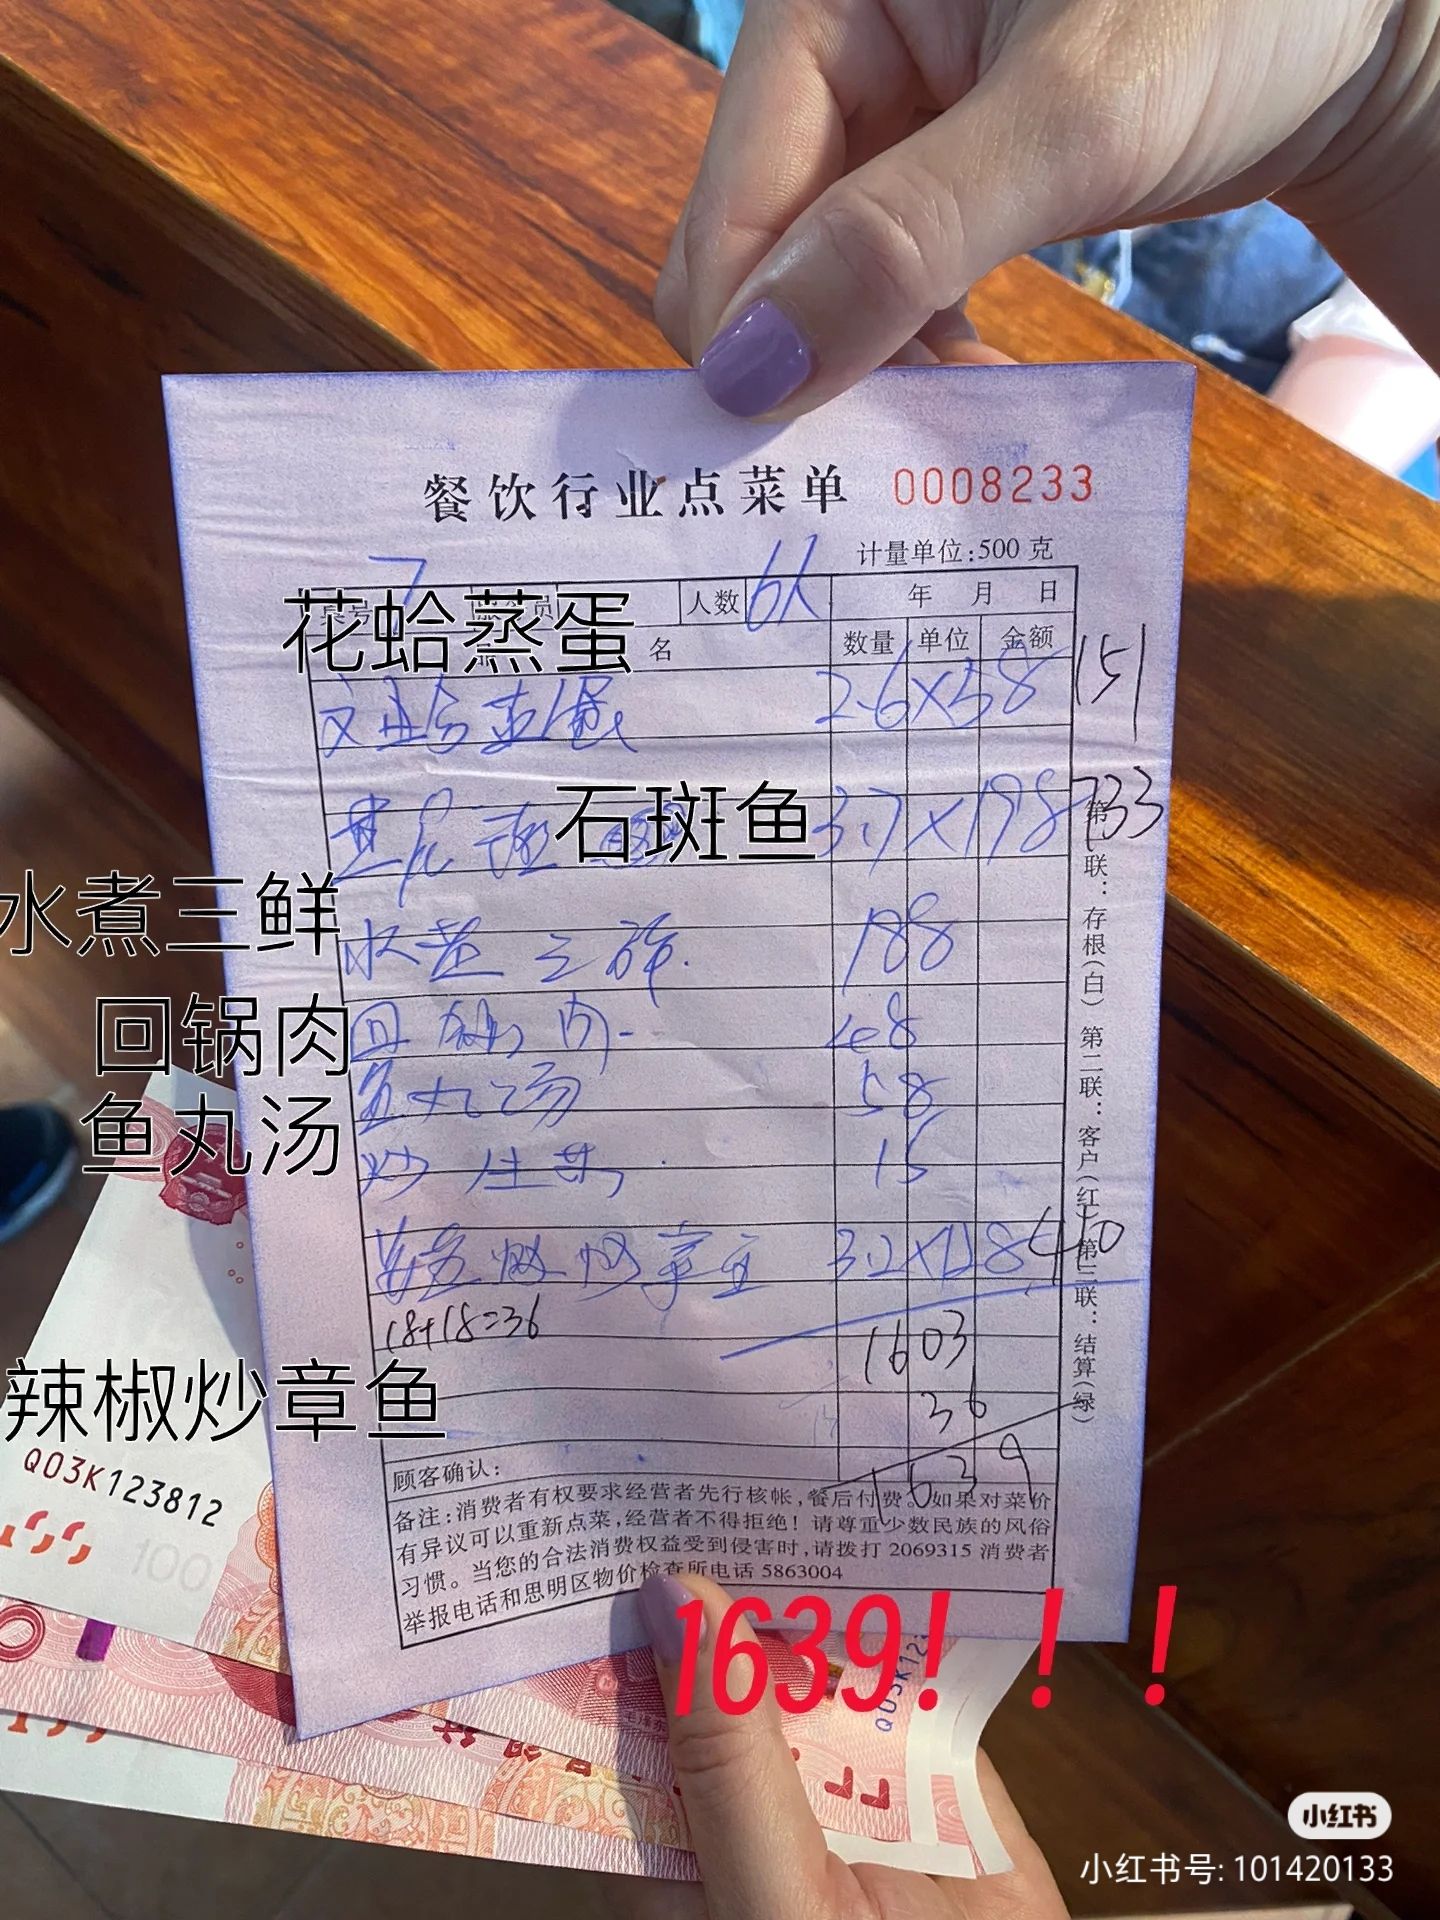 餐饮行业点菜单 0008233
计量单位:500 克
7
人数 6人 年 月 日
花蛤蒸蛋
名 数量 单位 金额
文蛤蒸蛋 2.6×58 151
石斑鱼
3.7×198 733
水煮三鲜
水煮三鲜 188
回锅肉
回锅肉 48
鱼丸汤
鱼丸汤 58
炒生菜 15
辣椒炒章鱼
3.2×128 410
18+18=36
1603
36
1639
顾客确认:
备注:消费者有权要求经营者先行核帐,餐后付费。如果对菜价
有异议可以重新点菜,经营者不得拒绝!请尊重少数民族的风俗
习惯。当您的合法消费权益受到侵害时,请拨打 2069315 消费者
举报电话和思明区物价检查所电话 5863004
第一联:存根(白) 第二联:客户(红) 第三联:结算(绿)
1639!!!
Q03K123812
100
小红书
小红书号: 101420133